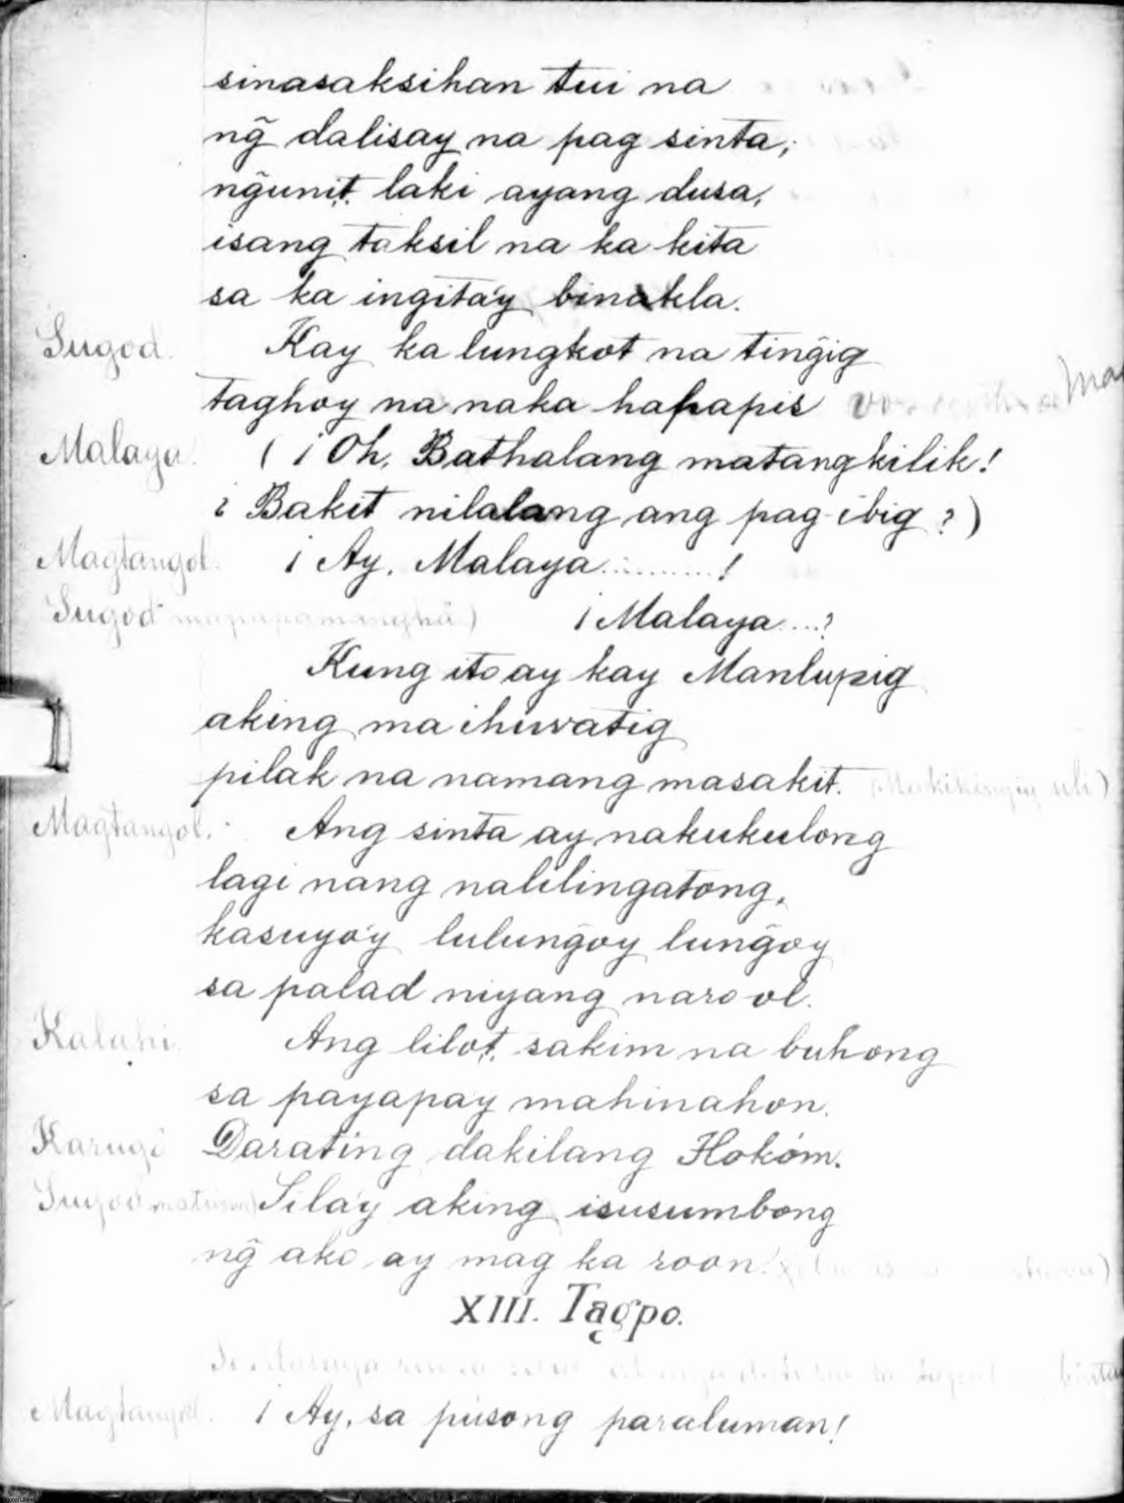 sinasaksihan tui na
ng̃ dalisay na pag sinta,
ng̃unit, laki ayang dusa,
isang taksil na ka kita
sa ka ingita'y binakla.
Sugod. Kay ka lungkot na ting̃ig
taghoy na naka hahapis
Malaya. ( ¡Oh, Bathalang matangkilik!
¿Bakit nilalang ang pag-ibig?)
Magtangol. ¡Ay, Malaya..........!
Sugod ¡Malaya....?
Kung ito ay kay Manlupig
aking ma ihiwatig
pilak na namang masakit. uli)
Magtangol. Ang sinta ay nakukulong
lagi nang nalilingatong,
kasuyo'y lulung̃oy lung̃oy
sa palad niyang naroól.
Kalahi. Ang lilot, sakim na buhong
sa payapay mahinahon.
Karugi Darating dakilang Hokóm.
Sugod Sila'y aking isusumbong
ng̃ ako ay mag ka roon.
XIII. Tagpo.
Si Malaya
Magtangol. ¡Ay, sa púsong paraluman!